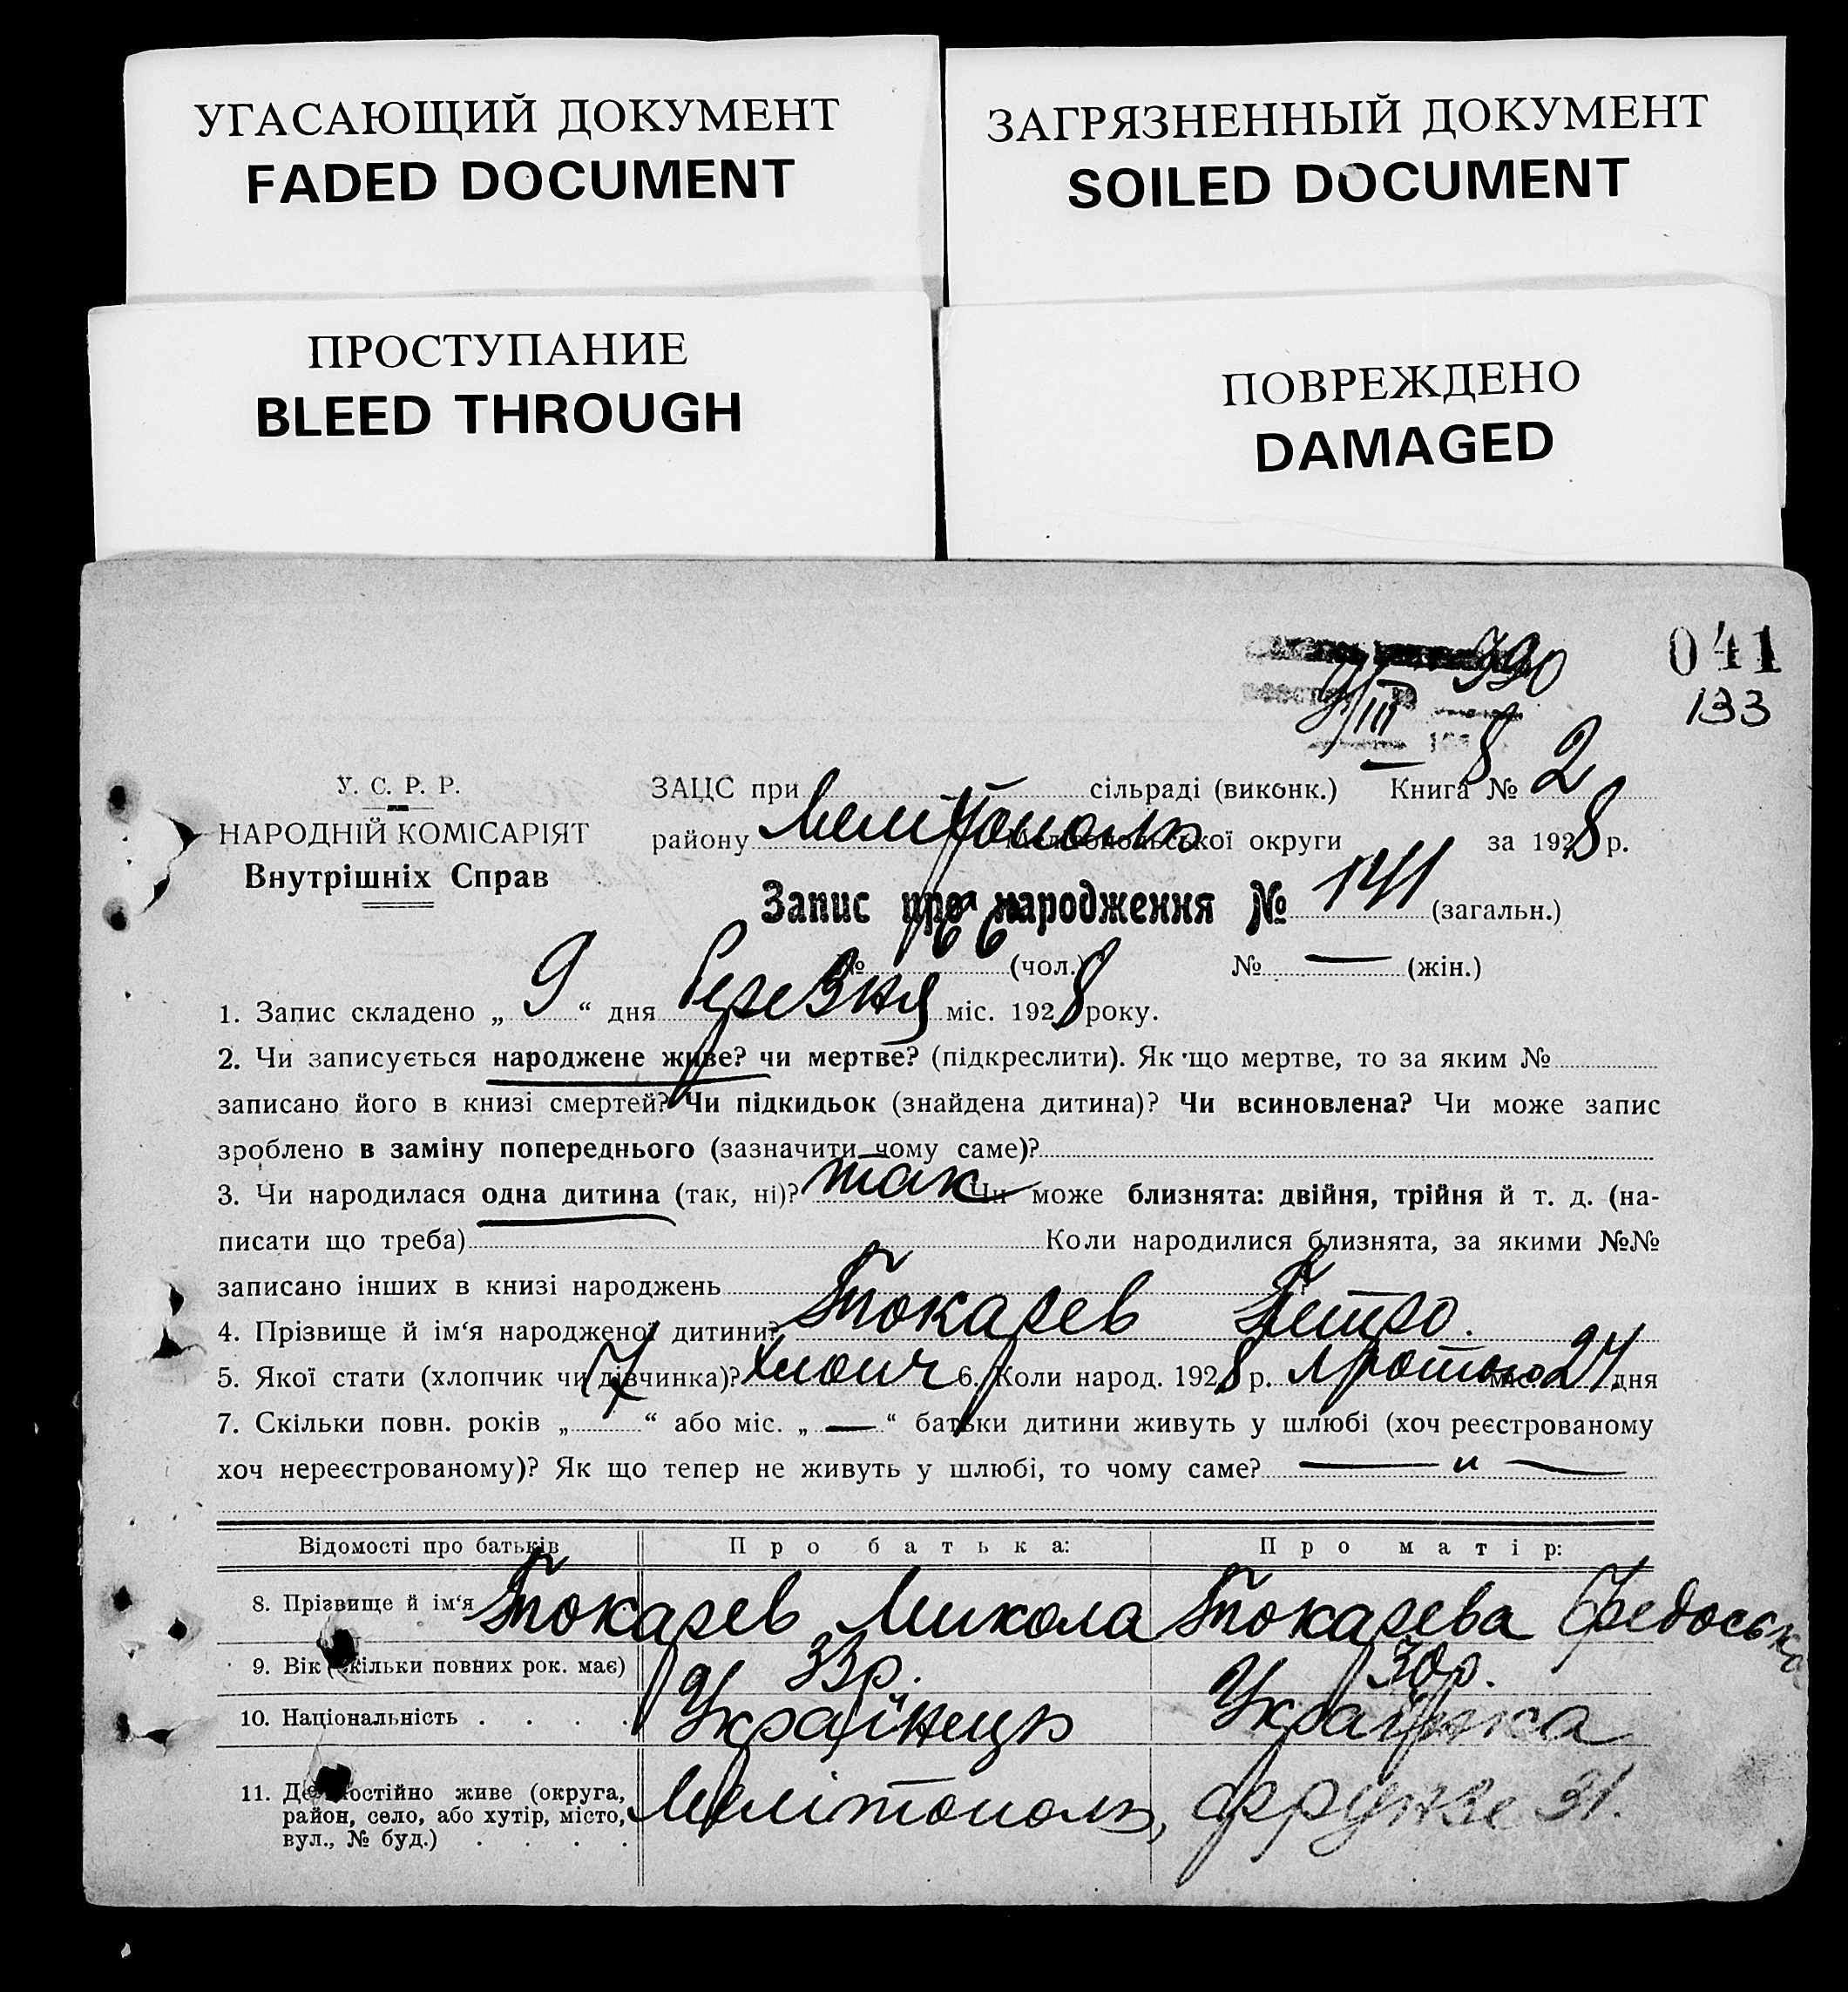 УГАСАЮЩИЙ ДОКУМЕНТ
FADED DOCUMENT
ЗАГРЯЗНЕННЫЙ ДОКУМЕНТ
SOILED DOCUMENT
ПРОСТУПАНИЕ
BLEED THROUGH
ПОВРЕЖДЕНО
DAMAGED
041
133
390
9/III
8
У. С. Р. Р.
НАРОДНІЙ КОМІСАРІЯТ
Внутрішніх Справ
ЗАЦС при сільраді (виконк.) Книга № 2
району Мелітополь Мелітопольської округи за 1928 р.
Запис про народження № 141 (загальн.)
№ 66 (чол.) № — (жін.)
1. Запис складено „ 9 “ дня березня міс. 1928 року.
2. Чи записується народжене живе? чи мертве? (підкреслити). Як що мертве, то за яким №
записано його в книзі смертей? Чи підкидьок (знайдена дитина)? Чи всиновлена? Чи може запис
зроблено в заміну попереднього (зазначити чому саме)?
3. Чи народилася одна дитина (так, ні)? так Чи може близнята: двійня, трійня й т. д. (на-
писати що треба) Коли народилися близнята, за якими №№
записано інших в книзі народжень
4. Прізвище й ім‘я народженої дитини? Токарев Петро.
5. Якої стати (хлопчик чи дівчинка)? хлопч 6. Коли народ. 1928 р. лютого міс. 24 дня
7. Скільки повн. років „ 7 “ або міс. „ — “ батьки дитини живуть у шлюбі (хоч реєстрованому
хоч нереєстрованому)? Як що тепер не живуть у шлюбі, то чому саме? — „ —
Відомості про батьків Про батька: Про матір:
8. Прізвище й ім‘я Токарев Микола Токарева Федоська
9. Вік (скільки повних рок. має) 33 р. 30 р.
10. Національність . . . . Українець Українка
11. Де постійно живе (округа,
район, село, або хутір, місто,
вул., № буд.) . . . . Мелітополь, Фрунзе 31.